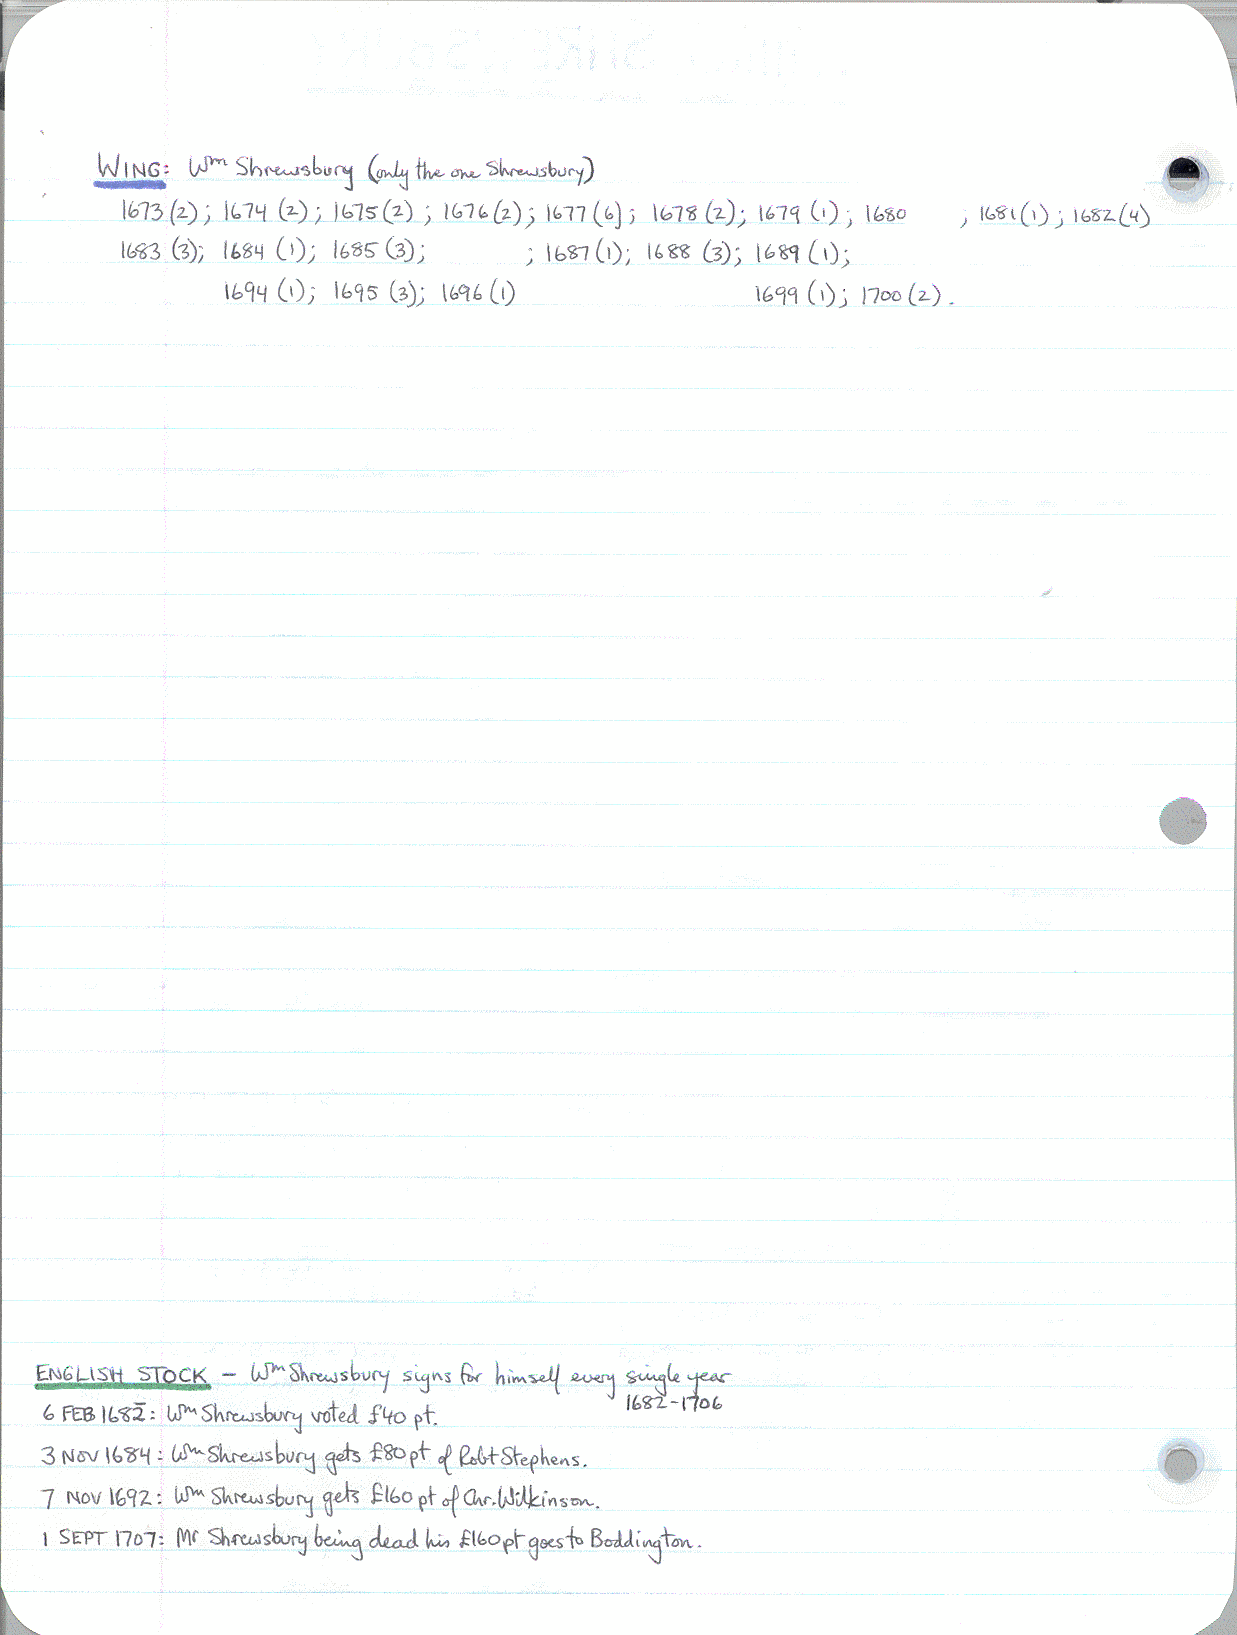 WING: Wm Shrewsbury (only the one Shrewsbury)
1673 (2); 1674 (2); 1675 (2); 1676 (2); 1677 (6); 1678 (2); 1679 (1); 1680 ; 1681 (1); 1682 (4)
1683 (3); 1684 (1); 1685 (3); ; 1687 (1); 1688 (3); 1689 (1);
1694 (1); 1695 (3); 1696 (1) 1699 (1); 1700 (2).
ENGLISH STOCK – Wm Shrewsbury signs for himself every single year
1682-1706
6 FEB 1682: Wm Shrewsbury voted £40 pt.
3 NOV 1684: Wm Shrewsbury gets £80 pt of Robt Stephens.
7 NOV 1692: Wm Shrewsbury gets £160 pt of Chr. Wilkinson.
1 SEPT 1707: Mr Shrewsbury being dead his £160 pt goes to Boddington.